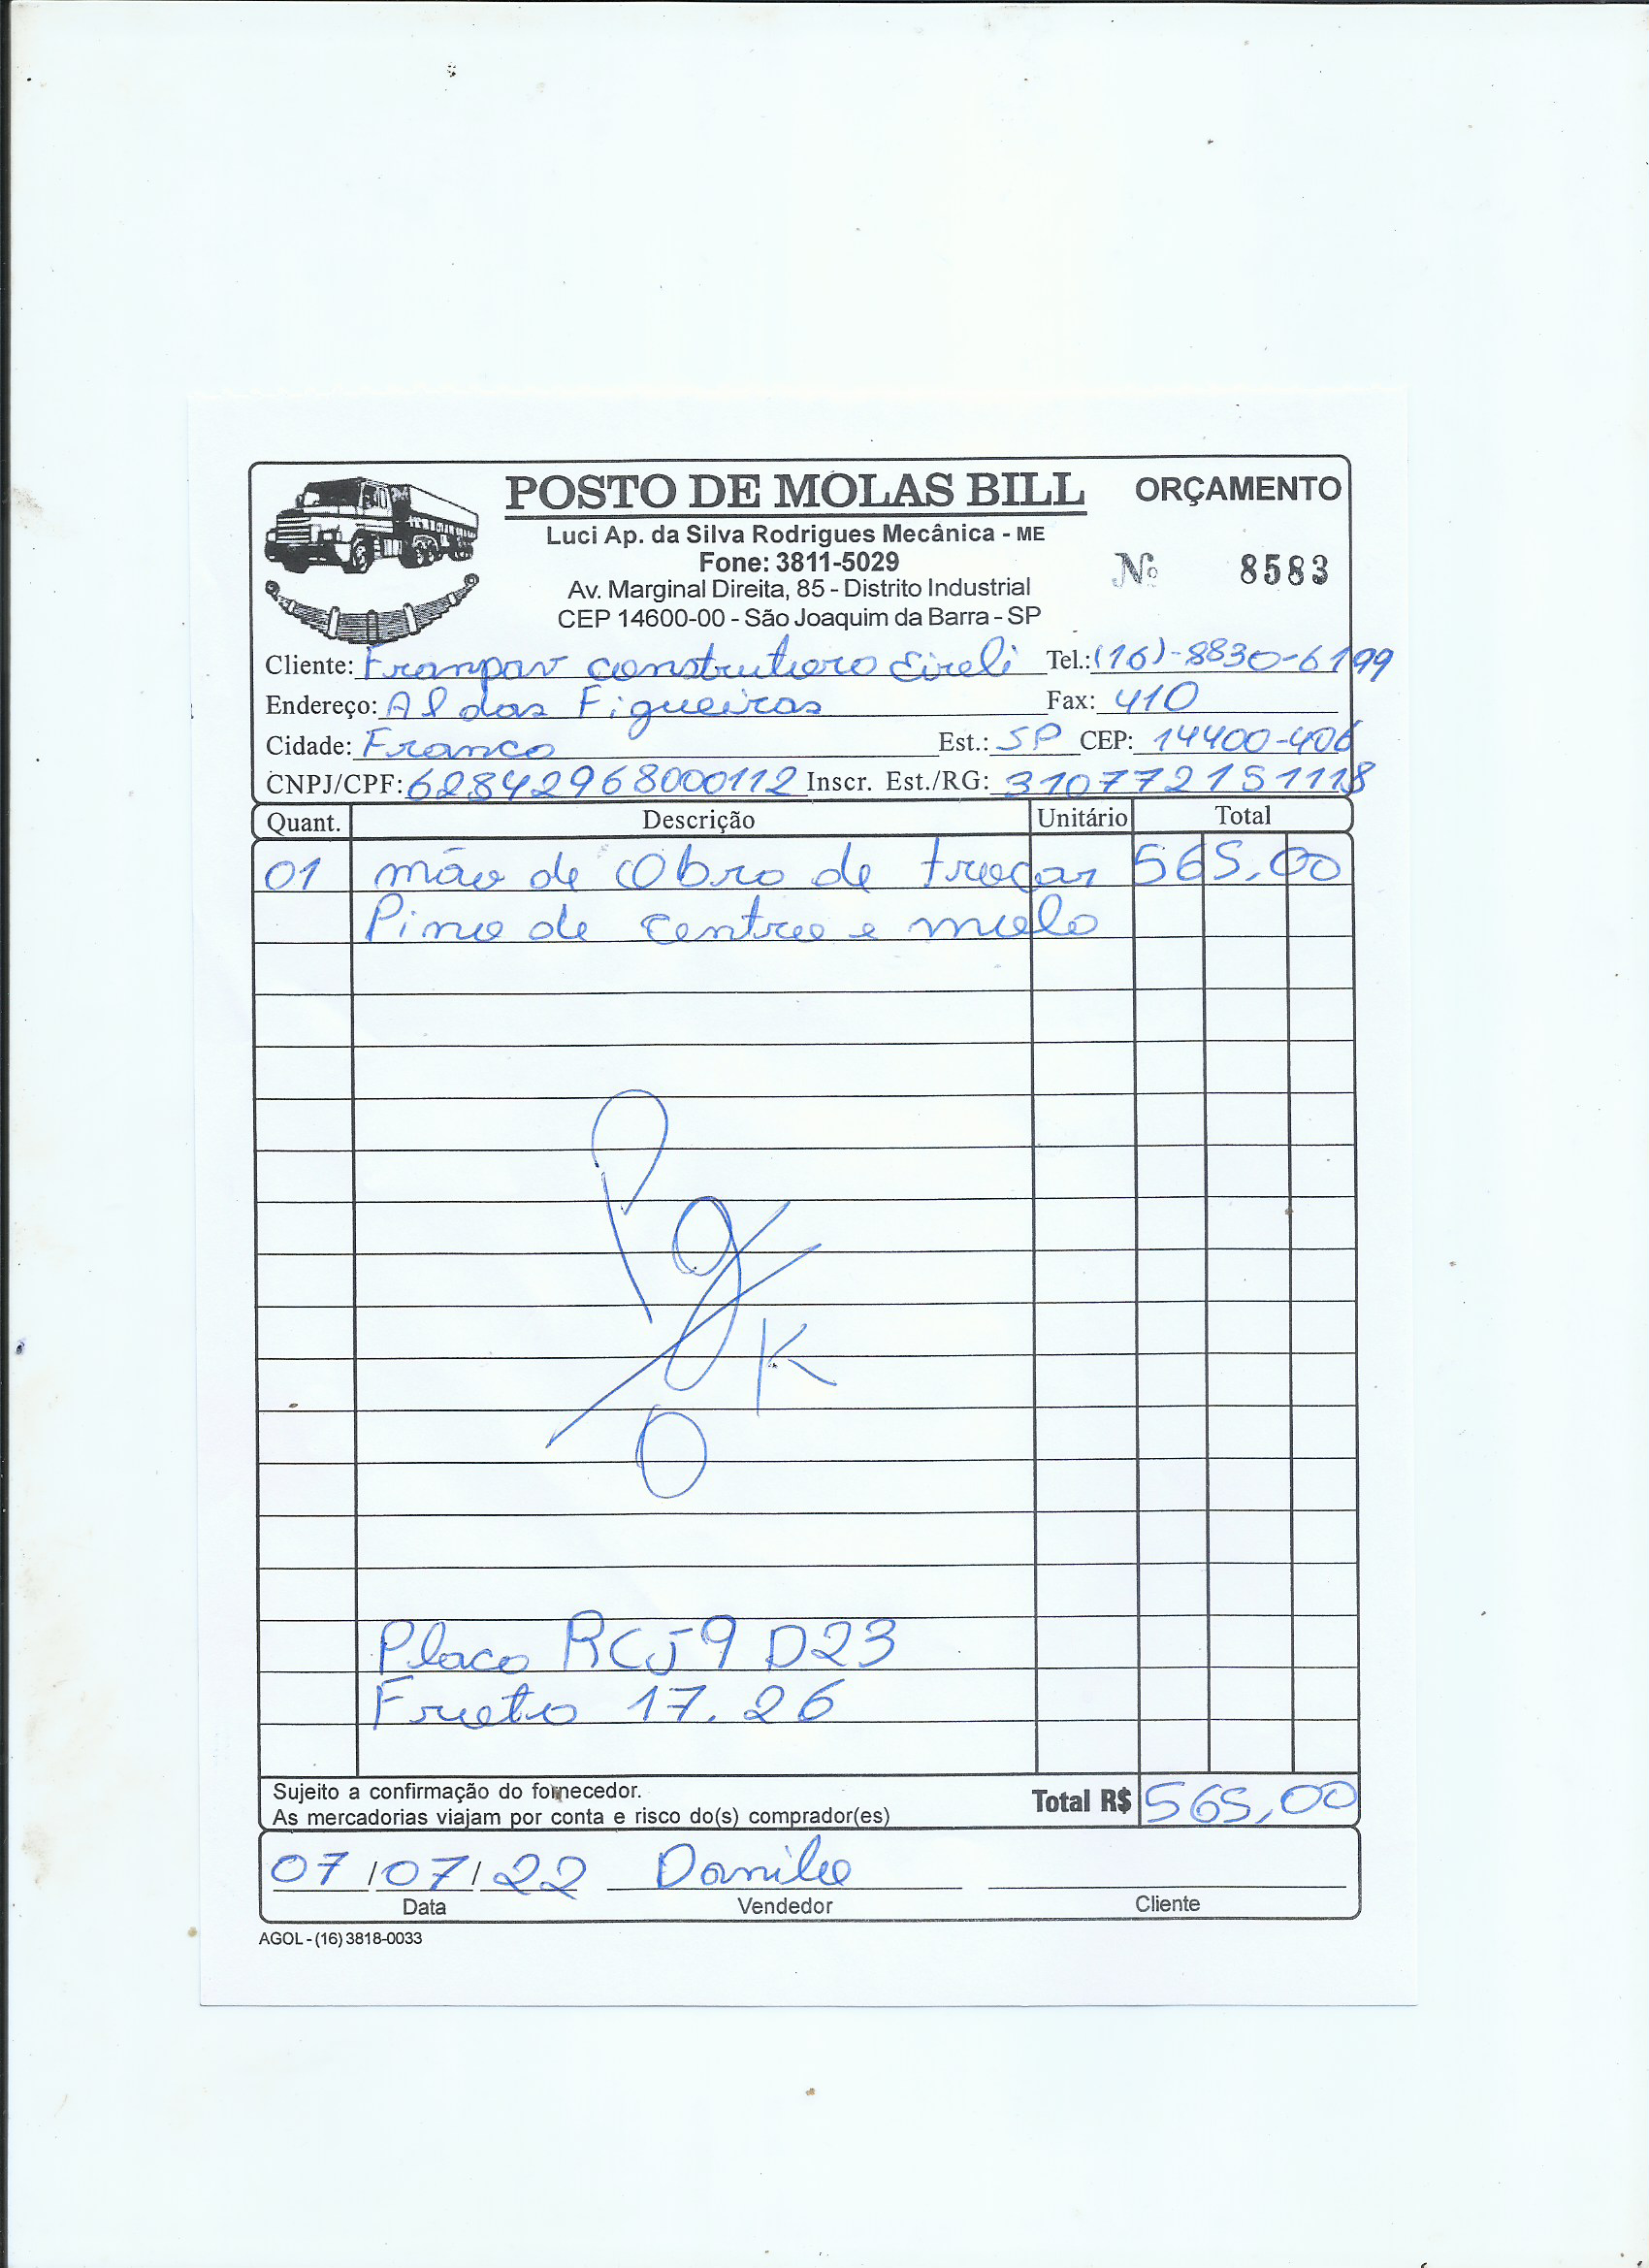 POSTO DE MOLAS BILL ORÇAMENTO
Luci Ap. da Silva Rodrigues Mecânica - ME
Fone: 3811-5029
Nº 8583
Av. Marginal Direita, 85 - Distrito Industrial
CEP 14600-00 - São Joaquim da Barra - SP
Cliente: Franpav construtora Eireli Tel.: (16)-8830-6199
Endereço: Al das Figueiras Fax: 410
Cidade: Franca Est.: SP CEP: 14400-406
CNPJ/CPF: 62842968000112 Inscr. Est./RG: 310772151118
Quant. Descrição Unitário Total
01 mão de Obra de trocar 565,00
Pino de centro e mola
Pg
OK
Placa RCJ9D23
Frota 17.26
Sujeito a confirmação do fornecedor.
As mercadorias viajam por conta e risco do(s) comprador(es)
Total R$ 565,00
07/07/22 Danilo
Data Vendedor Cliente
AGOL - (16) 3818-0033